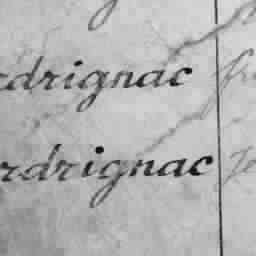 rdrignac
rdrignac